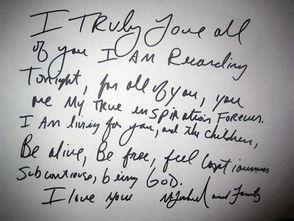 I TRULY Love all
of you I AM Recording
Tonight, for all of you, you
are My TRUE inSPiRation FOREVER.
I Am living for you, and the children,
Be alive, Be free, feel
Subconscious, being GOD.
I love you and Family